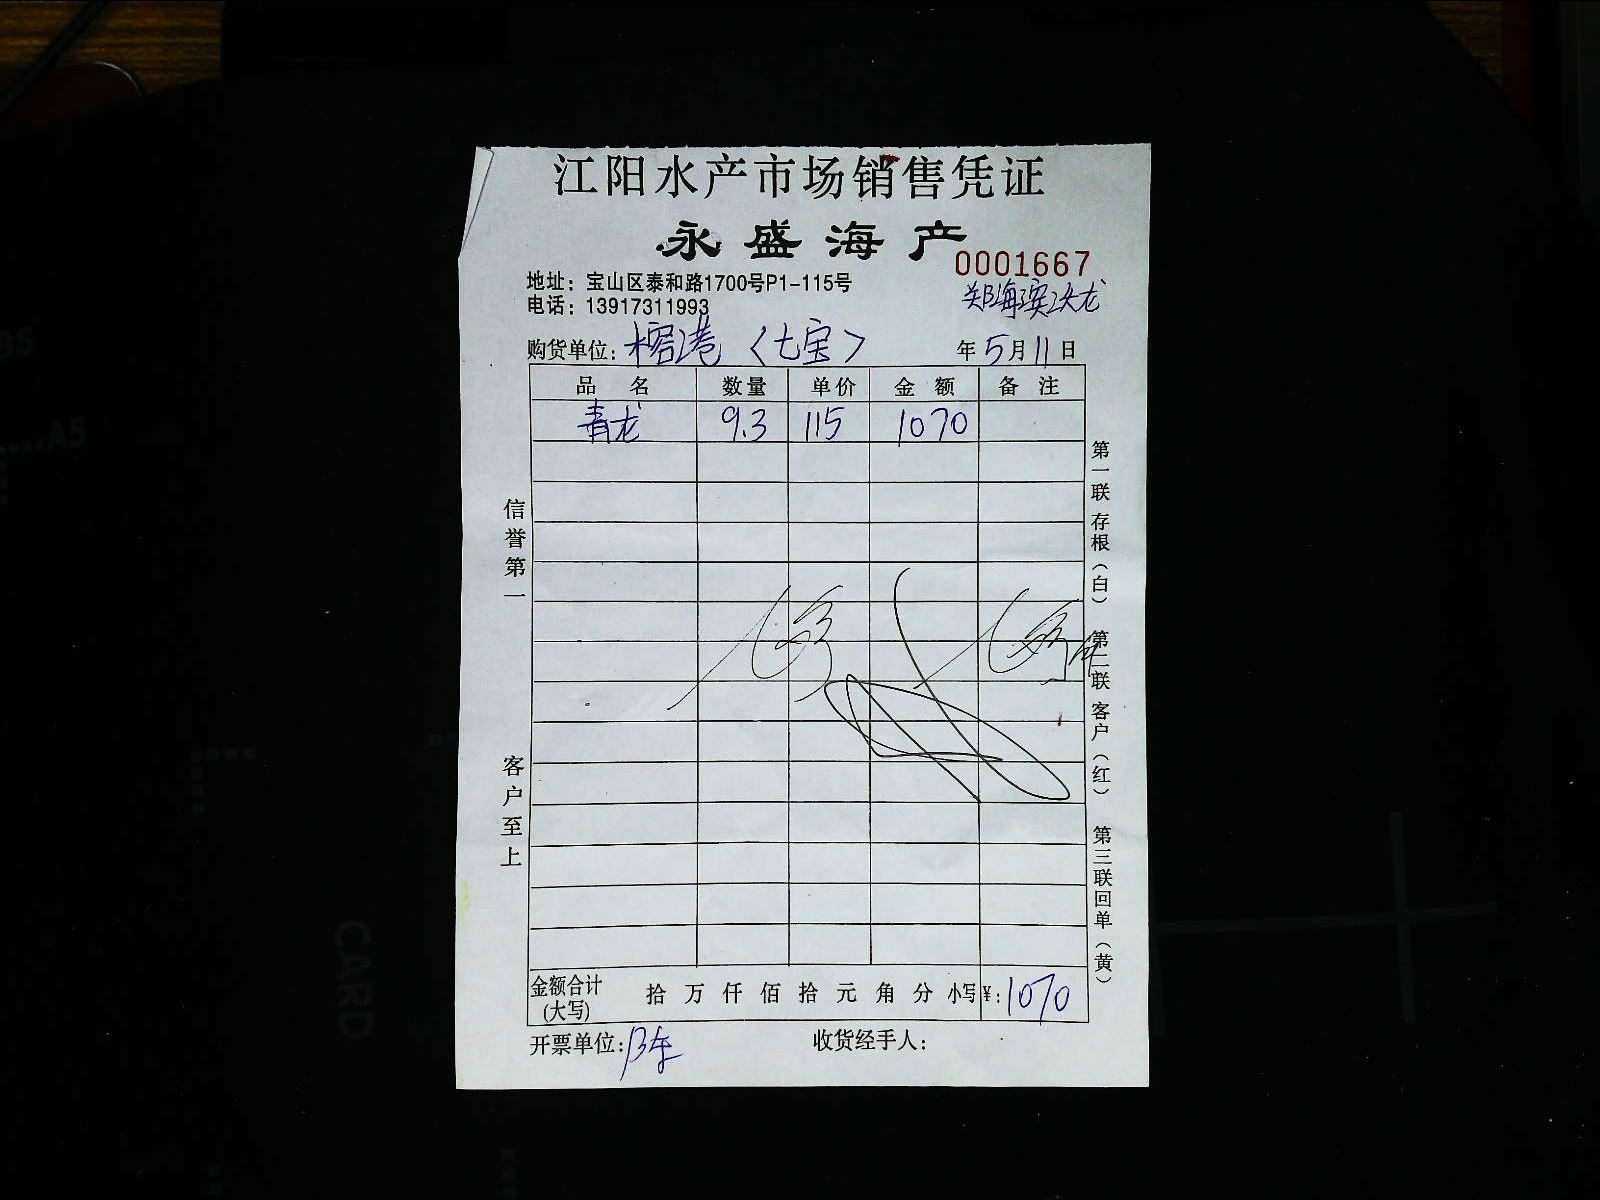 江阳水产市场销售凭证
永盛海产
0001667
地址：宝山区泰和路1700号P1-115号
电话：13917311993
郑海滨
购货单位：榕港〈七宝〉 年5月11日
品名 数量 单价 金额 备注
青龙 9.3 115 1070
信誉第一
客户至上
第一联存根（白） 第二联客户（红） 第三联回单（黄）
金额合计（大写） 拾 万 仟 佰 拾 元 角 分 小写¥：1070
开票单位：陈 收货经手人：
A5
CARD